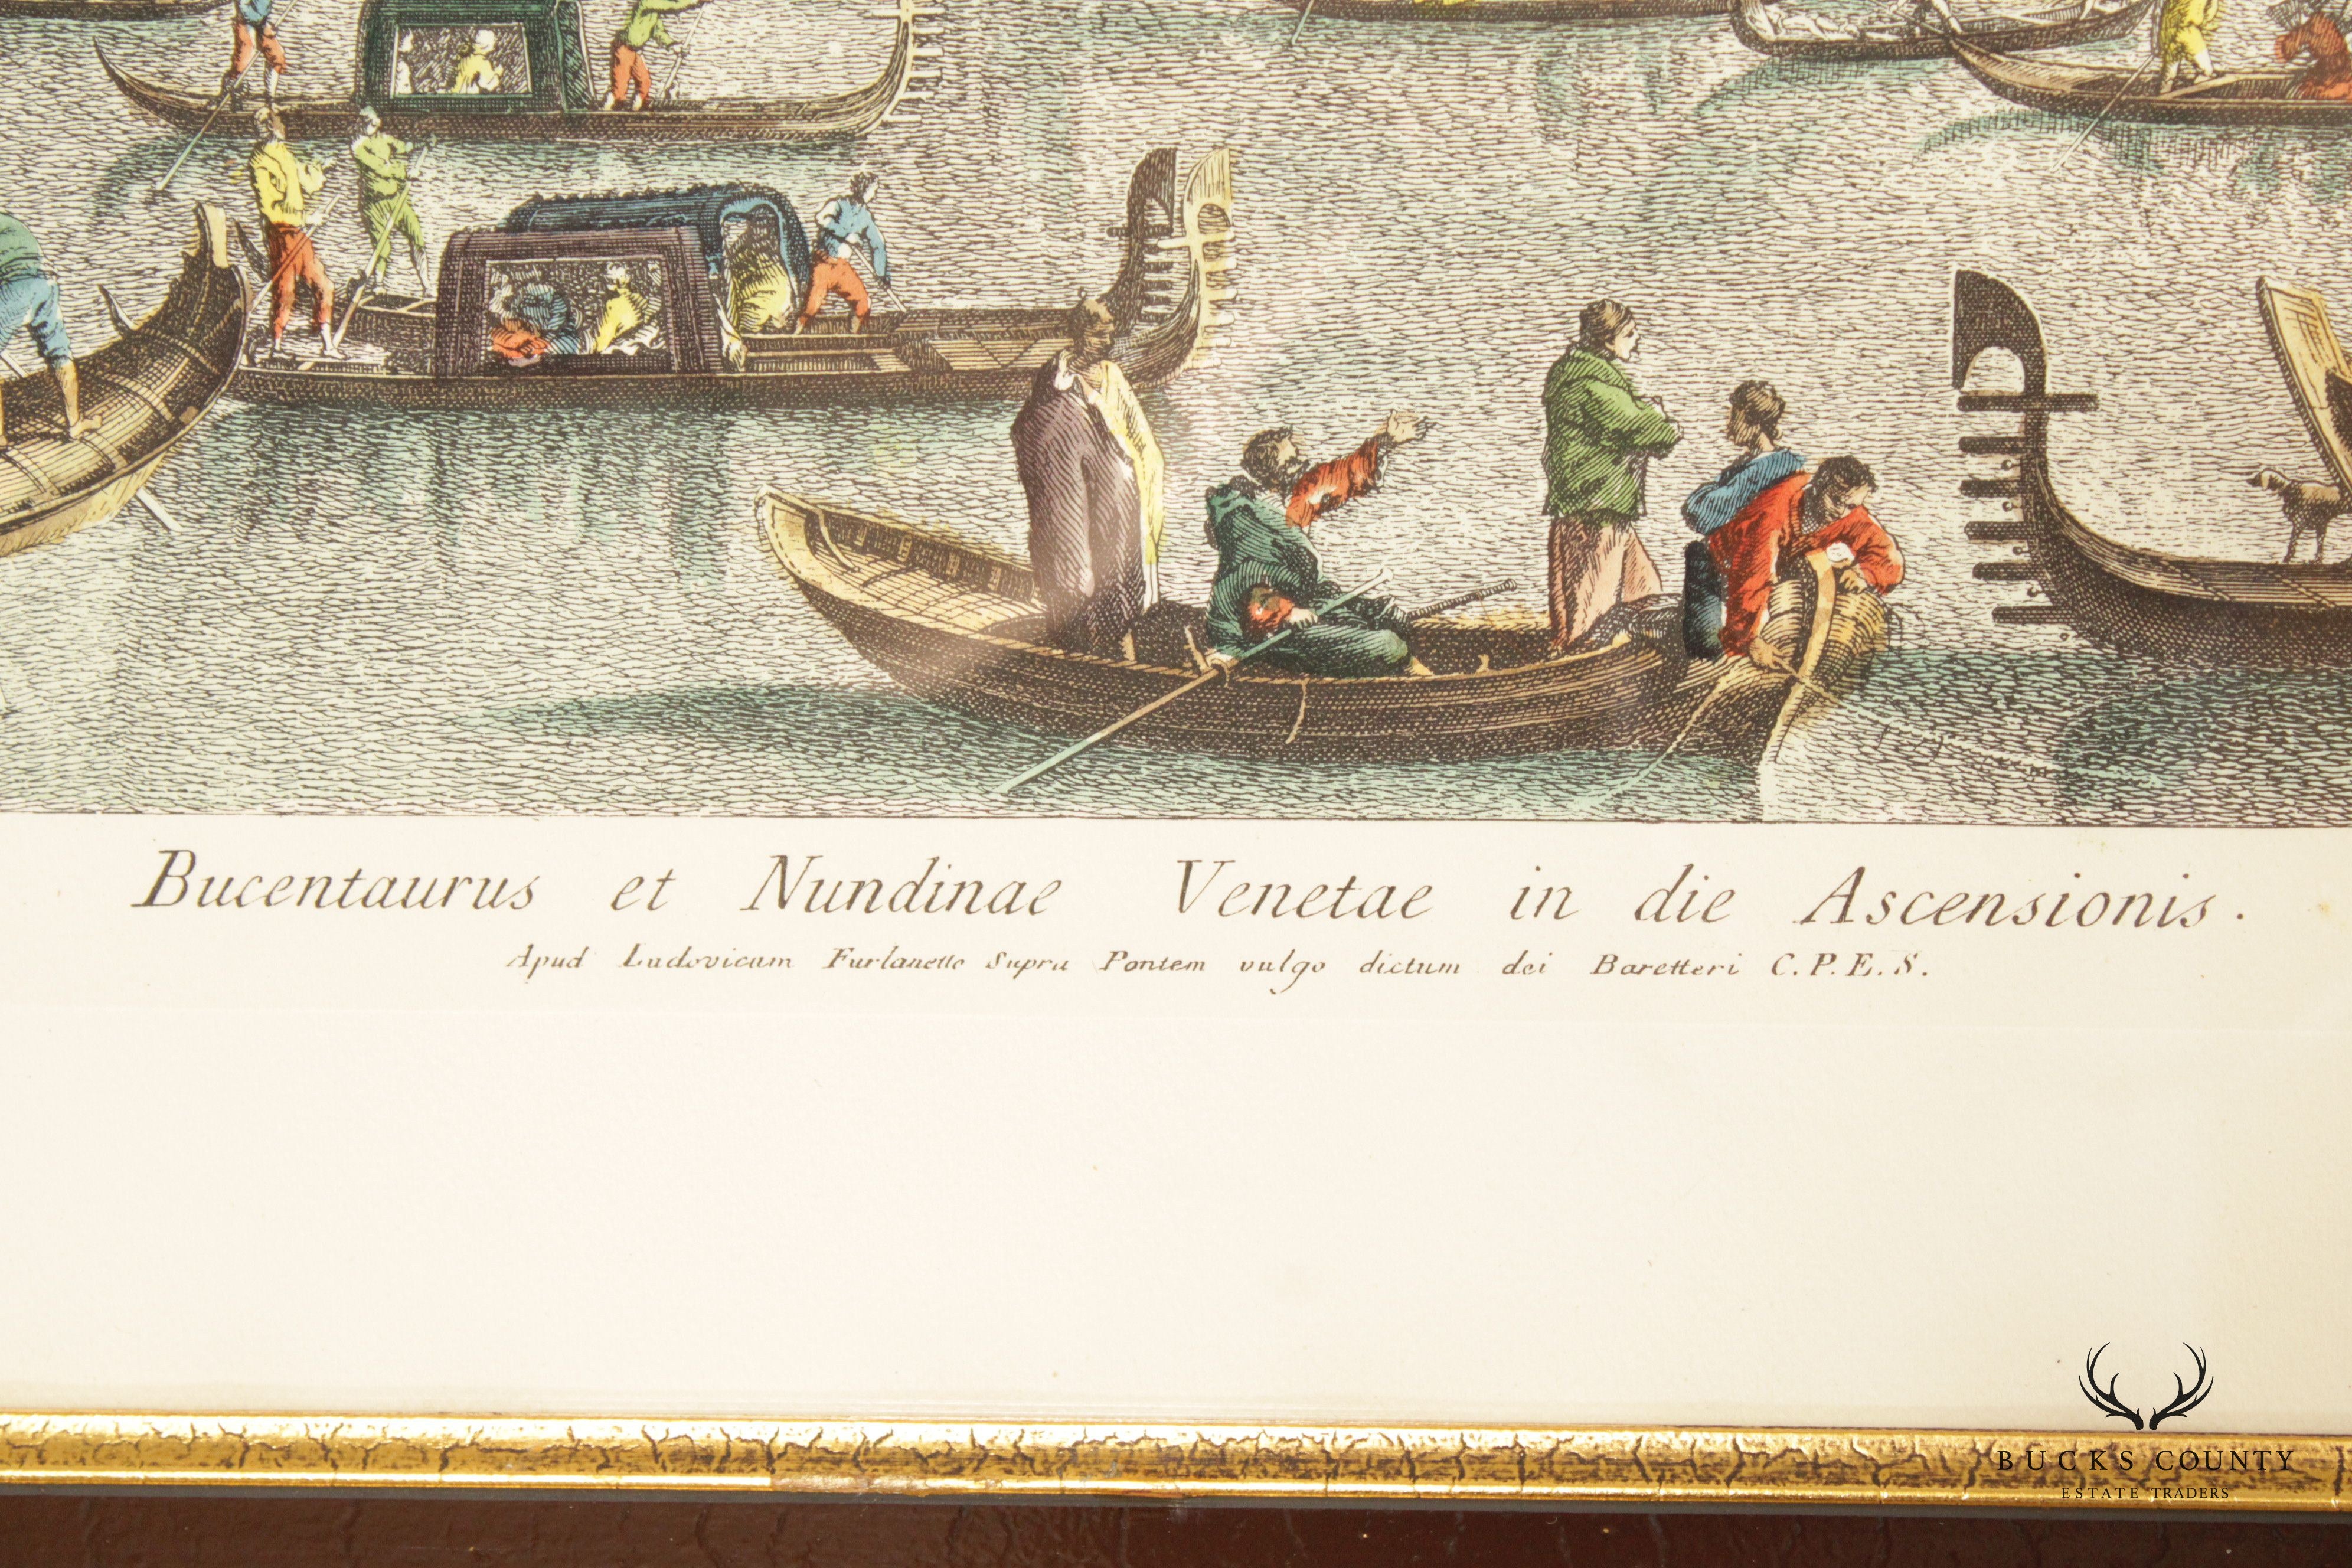 Bucentaurus et Nundinae Venetae in die Ascensionis.
Apud Ludovicum Furlanetto Supra Pontem vulgo dictum dei Baretteri C.P.E.S.
BUCKS COUNTY
ESTATE TRADERS